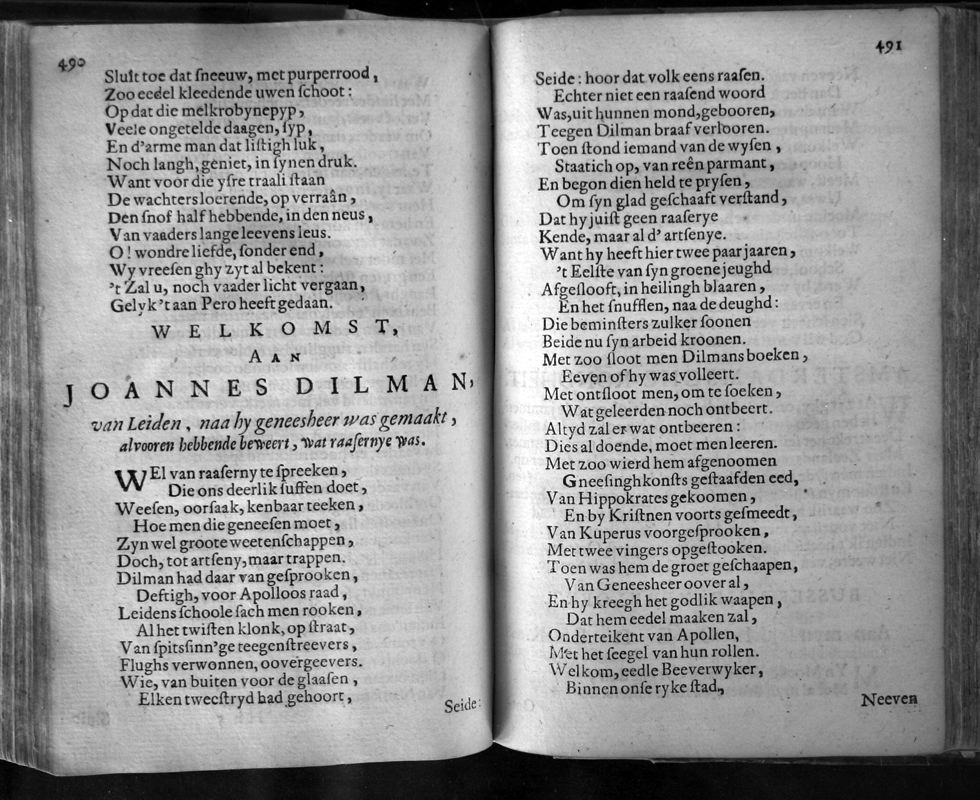 490
Sluit toe dat ſneeuw, met purperrood,
Zoo eedel kleedende uwen ſchoot:
Op dat die melkrobynepyp,
Veele ongetelde daagen, ſyp,
En d'arme man dat liſtigh luk,
Noch langh, geniet, in ſynen druk.
Want voor die yſre traali ſtaan
De wachters loerende, op verraân,
Den ſnof half hebbende, in den neus,
Van vaaders lange leevens leus.
O! wondre liefde, ſonder end,
Wy vreeſen ghy zyt al bekent:
't Zal u, noch vaader licht vergaan,
Gelyk 't aan Pero heeft gedaan.
WELKOMST,
AAN
JOANNES DILMAN,
van Leiden, naa hy geneesheer was gemaakt,
alvooren hebbende beweert, wat raaſernye was.
WEl van raaſerny te ſpreeken,
Die ons deerlik ſuffen doet,
Weeſen, oorſaak, kenbaar teeken,
Hoe men die geneeſen moet,
Zyn wel groote weetenſchappen,
Doch, tot artſeny, maar trappen.
Dilman had daar van geſprooken,
Deftigh, voor Apolloos raad,
Leidens ſchoole ſach men rooken,
Al het twiſten klonk, op ſtraat,
Van ſpitsſinn'ge teegenſtreevers,
Flughs verwonnen, oovergeevers.
Wie, van buiten voor de glaaſen,
Elken tweeſtryd had gehoort,
Seide:
491
Seide: hoor dat volk eens raaſen.
Echter niet een raaſend woord
Was, uit hunnen mond, gebooren,
Teegen Dilman braaf verlooren.
Toen ſtond iemand van de wyſen,
Staatich op, van reên parmant,
En begon dien held te pryſen,
Om ſyn glad geſchaaft verſtand,
Dat hy juiſt geen raaſerye
Kende, maar al d'artſenye.
Want hy heeft hier twee paar jaaren,
't Eelſte van ſyn groene jeughd
Afgeſlooft, in heilingh blaaren,
En het ſnufflen, naa de deughd:
Die beminſters zulker ſoonen
Beide nu ſyn arbeid kroonen.
Met zoo ſloot men Dilmans boeken,
Eeven of hy was volleert.
Met ontſloot men, om te ſoeken,
Wat geleerden noch ontbeert.
Altyd zal er wat ontbeeren:
Dies al doende, moet men leeren.
Met zoo wierd hem afgenoomen
Gneeſinghkonſts geſtaafden eed,
Van Hippokrates gekoomen,
En by Kriſtnen voorts geſmeedt,
Van Kuperus voorgeſprooken,
Met twee vingers opgeſtooken.
Toen was hem de groet geſchaapen,
Van Geneesheer oover al,
En hy kreegh het godlik waapen,
Dat hem eedel maaken zal,
Onderteikent van Apollen,
Met het ſeegel van hun rollen.
Welkom, eedle Beeverwyker,
Binnen onſe ryke ſtad,
Neeven